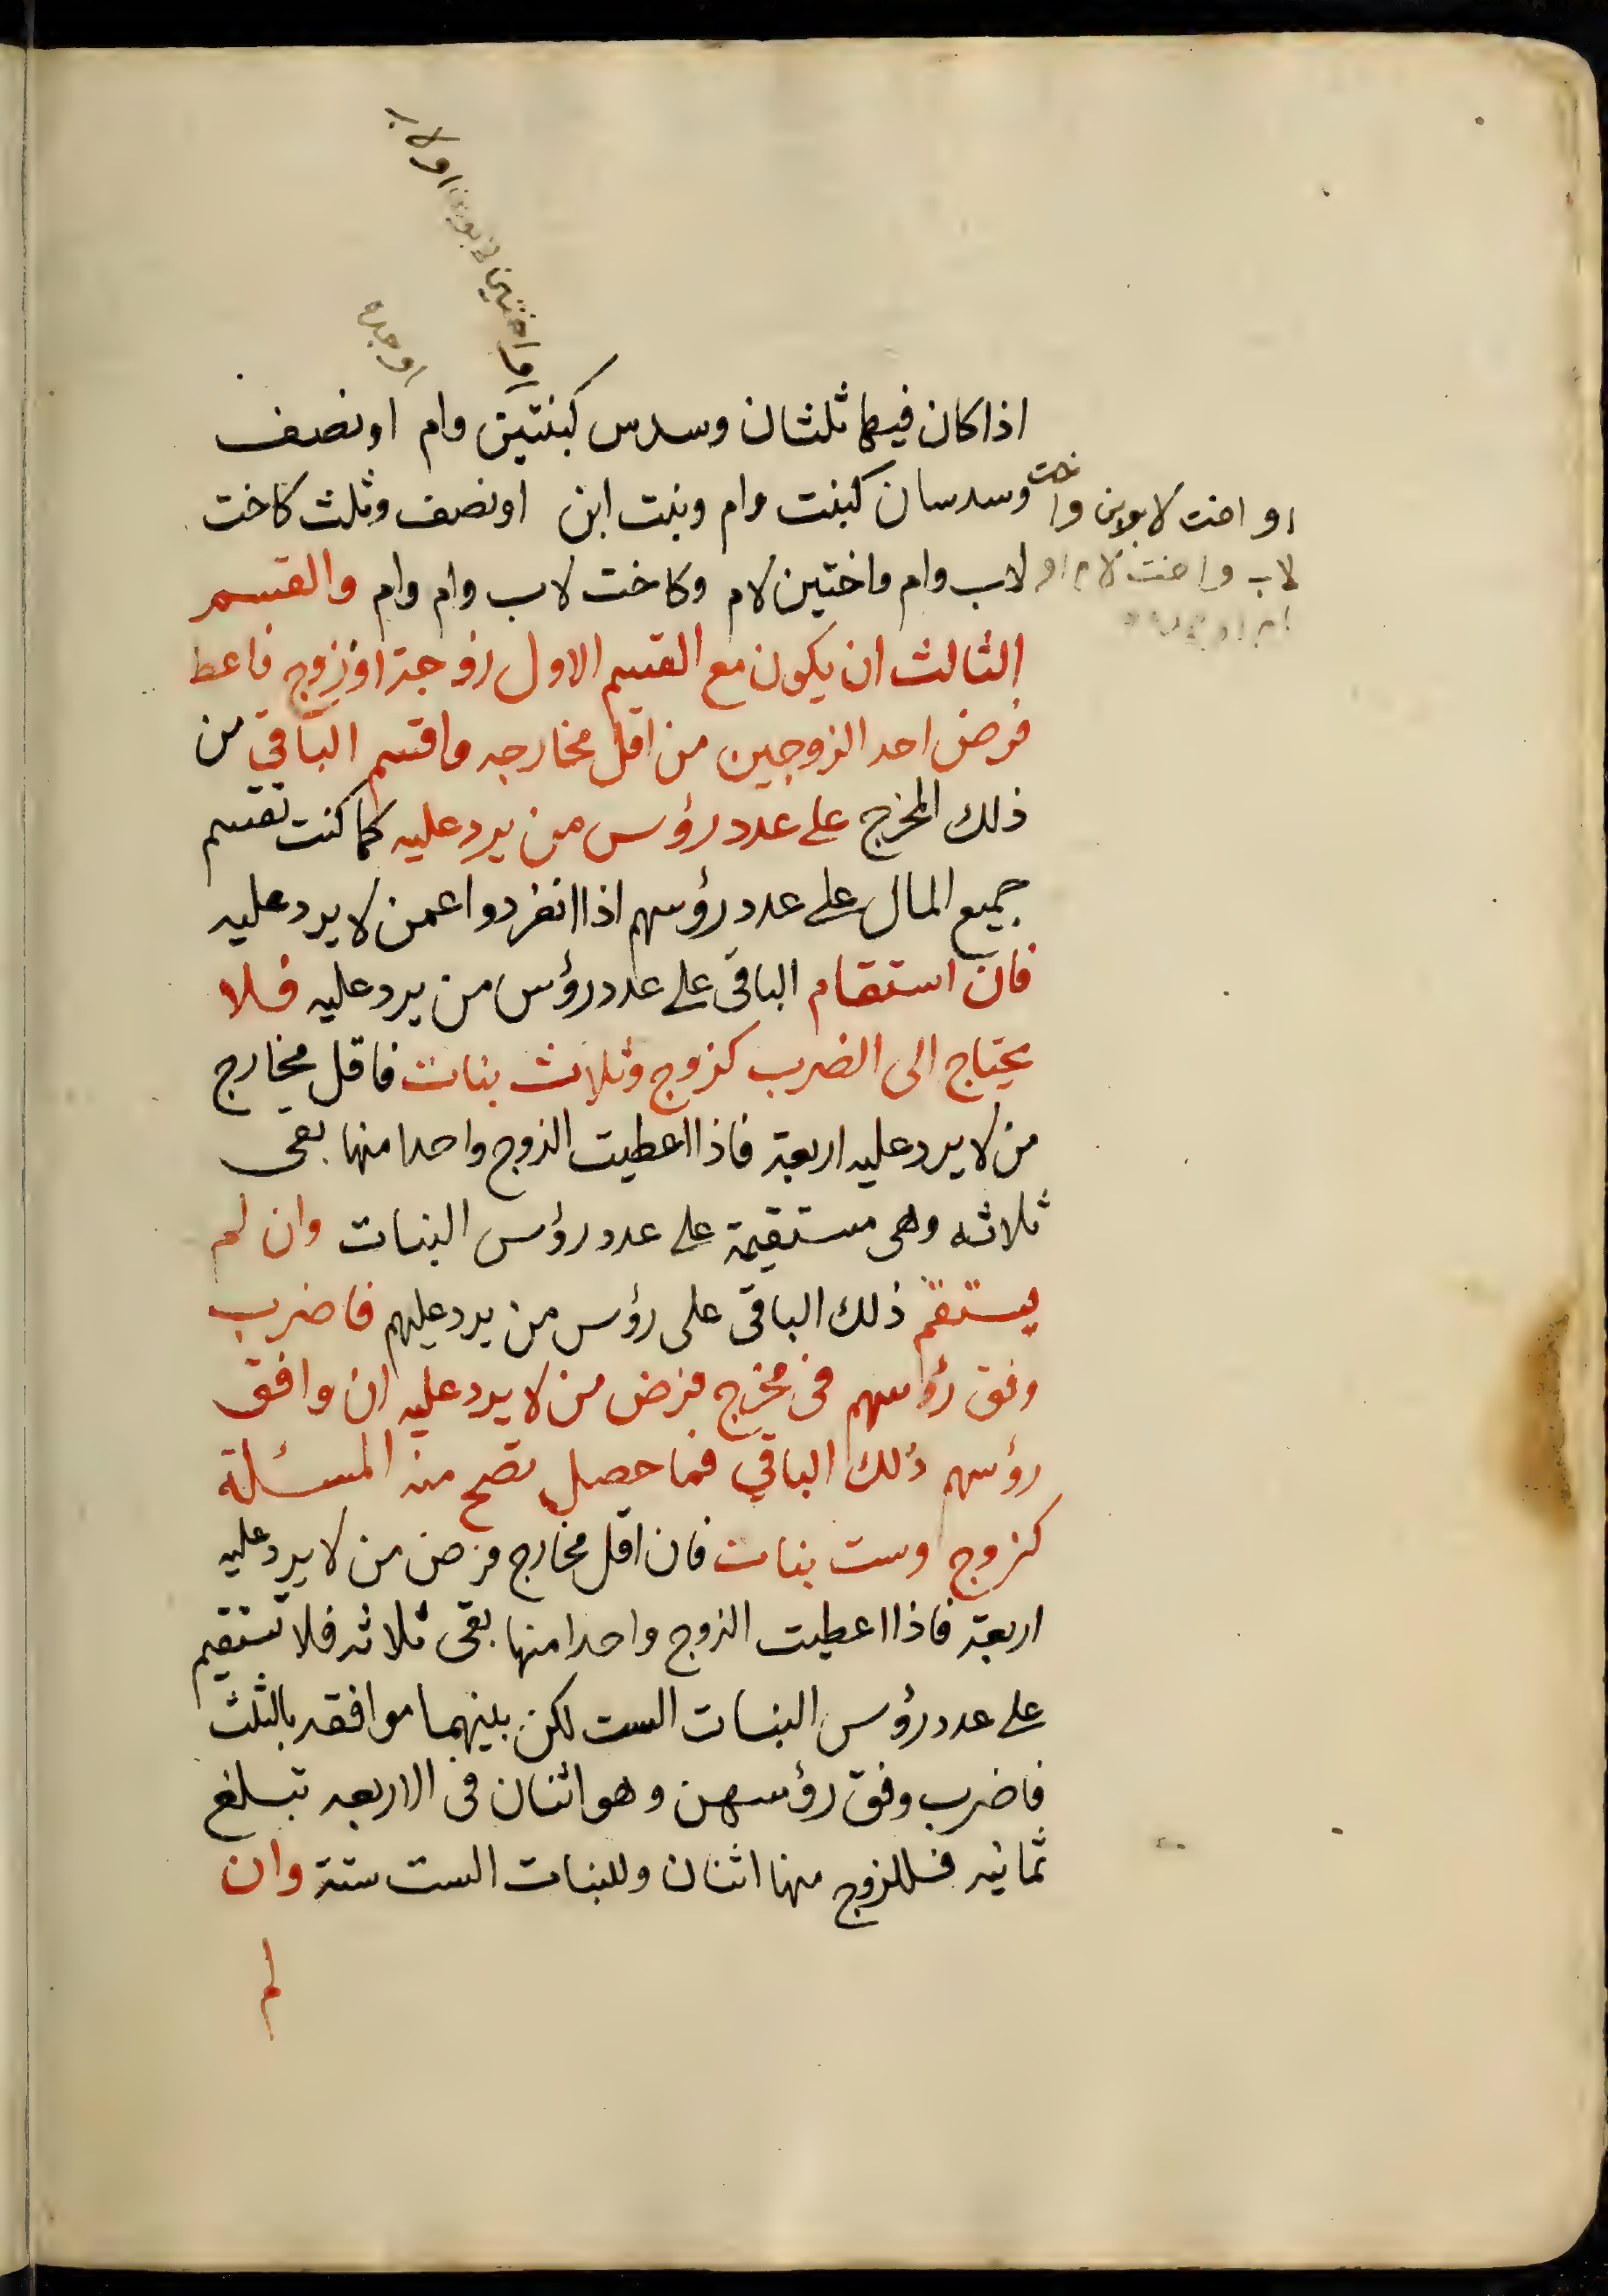 او اختين لابوين او لاب
او جده
اذا كان فيها ثلثان وسدس كبنتين وام او نصف
وسدسان كبنت وام وبنت ابن او نصف وثلث كاخت
لاب وام واختين لام وكاخت لاب وام وام والقسم
الثالث ان يكون مع القسم الاول زوجة او زوج فاعط
فرض احد الزوجين من اقل مخارجه واقسم الباقي من
ذلك المخرج على عدد رؤس من يرد عليه كما كنت تقسم
جميع المال على عدد رؤسهم اذا انفردوا عمن لا يرد عليه
فان استقام الباقى على عدد رؤس من يرد عليه فلا
يحتاج الى الضرب كزوج وثلاث بنات فاقل مخارج
من لا يرد عليه اربعة فاذا اعطيت الزوج واحدا منها بقى
ثلاثه وهى مستقيمة على عدد رؤس البنات وان لم
يستقم ذلك الباقى على رؤس من يرد عليهم فاضرب
وفق رؤسهم فى مخرج فرض من لا يرد عليه ان وافق
رؤسهم ذلك الباقي فما حصل تصح منه المسئلة
كزوج وست بنات فان اقل مخارج فرض من لا يرد عليه
اربعة فاذا اعطيت الزوج واحدا منها بقى ثلاثه فلا تستقيم
على عدد رؤس البنات الست لكن بينهما موافقه بالثلث
فاضرب وفق رؤسهن وهو اثنان فى الاربعه تبلغ
ثمانيه فللزوج منها اثنان وللبنات الست ستة وان
لم
او اخت لابوين واخت
لاب واخت لام او